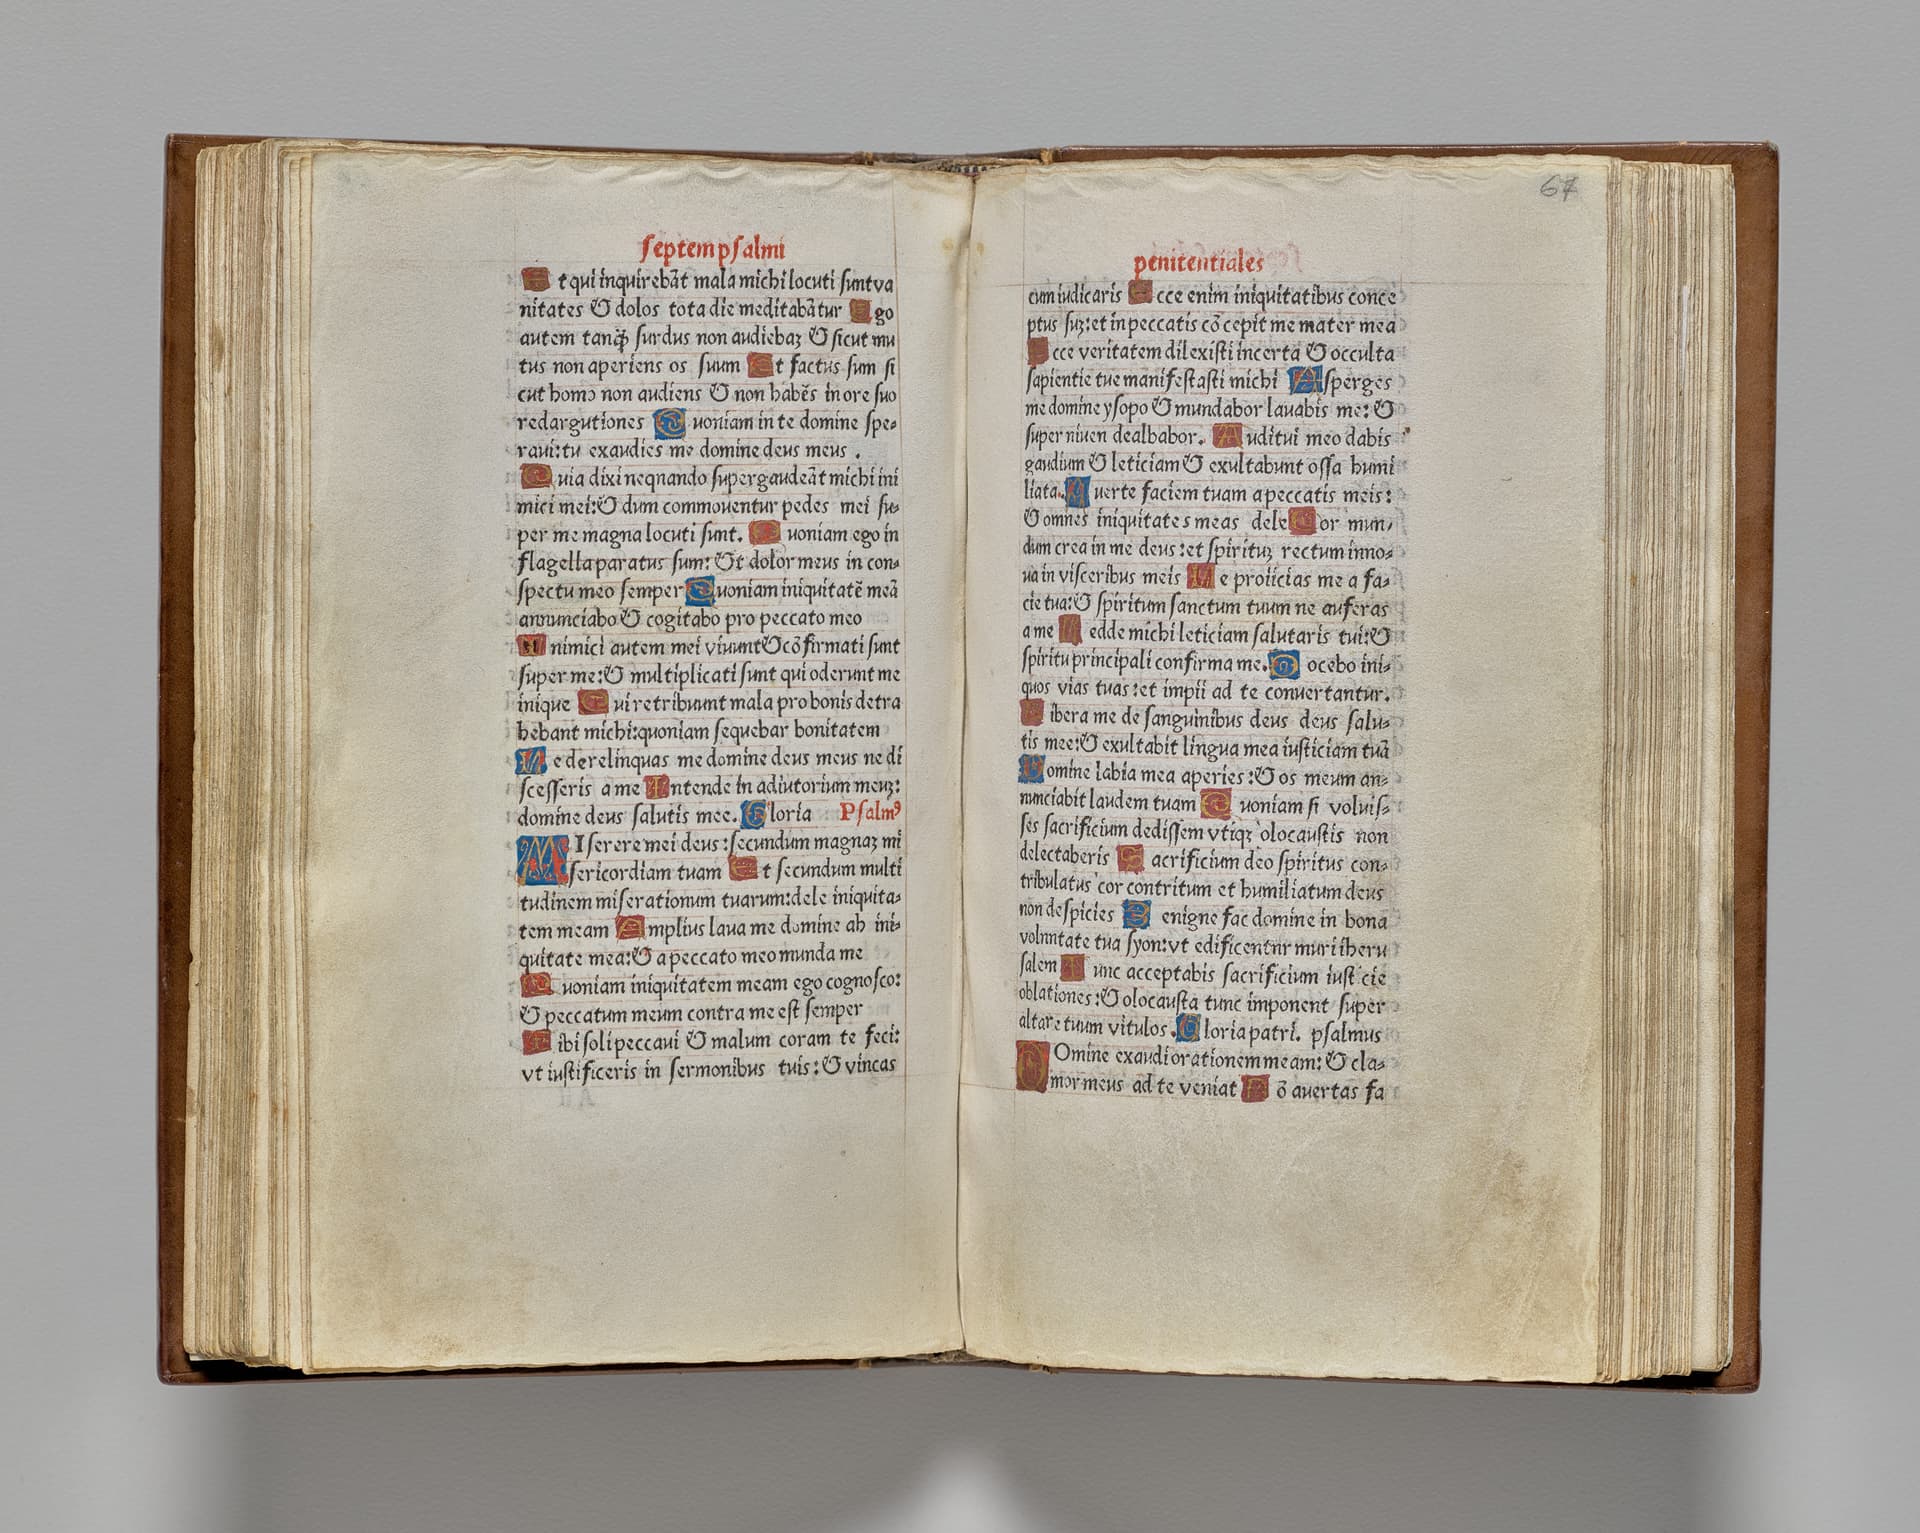 septem psalmi
Et qui inquirebãt mala michi locuti sunt va
nitates & dolos tota die meditabãtur Ego
autem tanq̃ surdus non audiebaz & sicut mu
tus non aperiens os suum Et factus sum si
cut homo non audiens & non habẽs in ore suo
redargutiones Quoniam in te domine spe-
raui: tu exaudies me domine deus meus .
Quia dixi neqnando supergaudeãt michi ini
mici mei: & dum commouentur pedes mei su-
per me magna locuti sunt. Quoniam ego in
flagella paratus sum: Et dolor meus in con-
spectu meo semper Quoniam iniquitatẽ meã
annunciabo & cogitabo pro peccato meo
Inimici autem mei viuunt & cõfirmati sunt
super me: & multiplicati sunt qui oderunt me
inique Qui retribuunt mala pro bonis detra
hebant michi: quoniam sequebar bonitatem
Ne derelinquas me domine deus meus ne di
scesseris a me Intende in adiutorium meuz:
domine deus salutis mee. Gloria Psalmꝰ
MIserere mei deus: secundum magnaz mi
sericordiam tuam Et secundum multi
tudinem miserationum tuarum: dele iniquita-
tem meam Amplius laua me domine ab ini-
quitate mea: & a peccato meo munda me
Quoniam iniquitatem meam ego cognosco:
& peccatum meum contra me est semper
Tibi soli peccaui & malum coram te feci:
vt iustificeris in sermonibus tuis: & vincas
67
penitentiales
cum iudicaris Ecce enim iniquitatibus conce
ptus suz: et in peccatis cõcepit me mater mea
Ecce veritatem dilexisti incerta & occulta
sapientie tue manifestasti michi Asperges
me domine ysopo & mundabor lauabis me: &
super niuen dealbabor. Auditui meo dabis
gaudium & leticiam & exultabunt ossa humi
liata. Auerte faciem tuam a peccatis meis:
& omnes iniquitates meas dele Cor mun-
dum crea in me deus: et spirituz rectum inno-
ua in visceribus meis Ne proiicias me a fa-
cie tua: & spiritum sanctum tuum ne auferas
a me Redde michi leticiam salutaris tui: &
spiritu principali confirma me. Docebo ini-
quos vias tuas: et impii ad te conuertantur.
Libera me de sanguinibus deus deus salu-
tis mee: & exultabit lingua mea iusticiam tuã
Domine labia mea aperies: & os meum an-
nunciabit laudem tuam Quoniam si voluis-
ses sacrificium dedissem vtiqz olocaustis non
delectaberis Sacrificium deo spiritus con-
tribulatus cor contritum et humiliatum deus
non despicies Benigne fac domine in bona
volnntate tua syon: vt edificentnr muri iheru
salem Tunc acceptabis sacrificium iusticie
oblationes: & olocausta tunc imponent super
altare tuum vitulos. Gloria patri. psalmus
DOmine exaudi orationem meam: & cla-
mor meus ad te veniat Nõ auertas fa